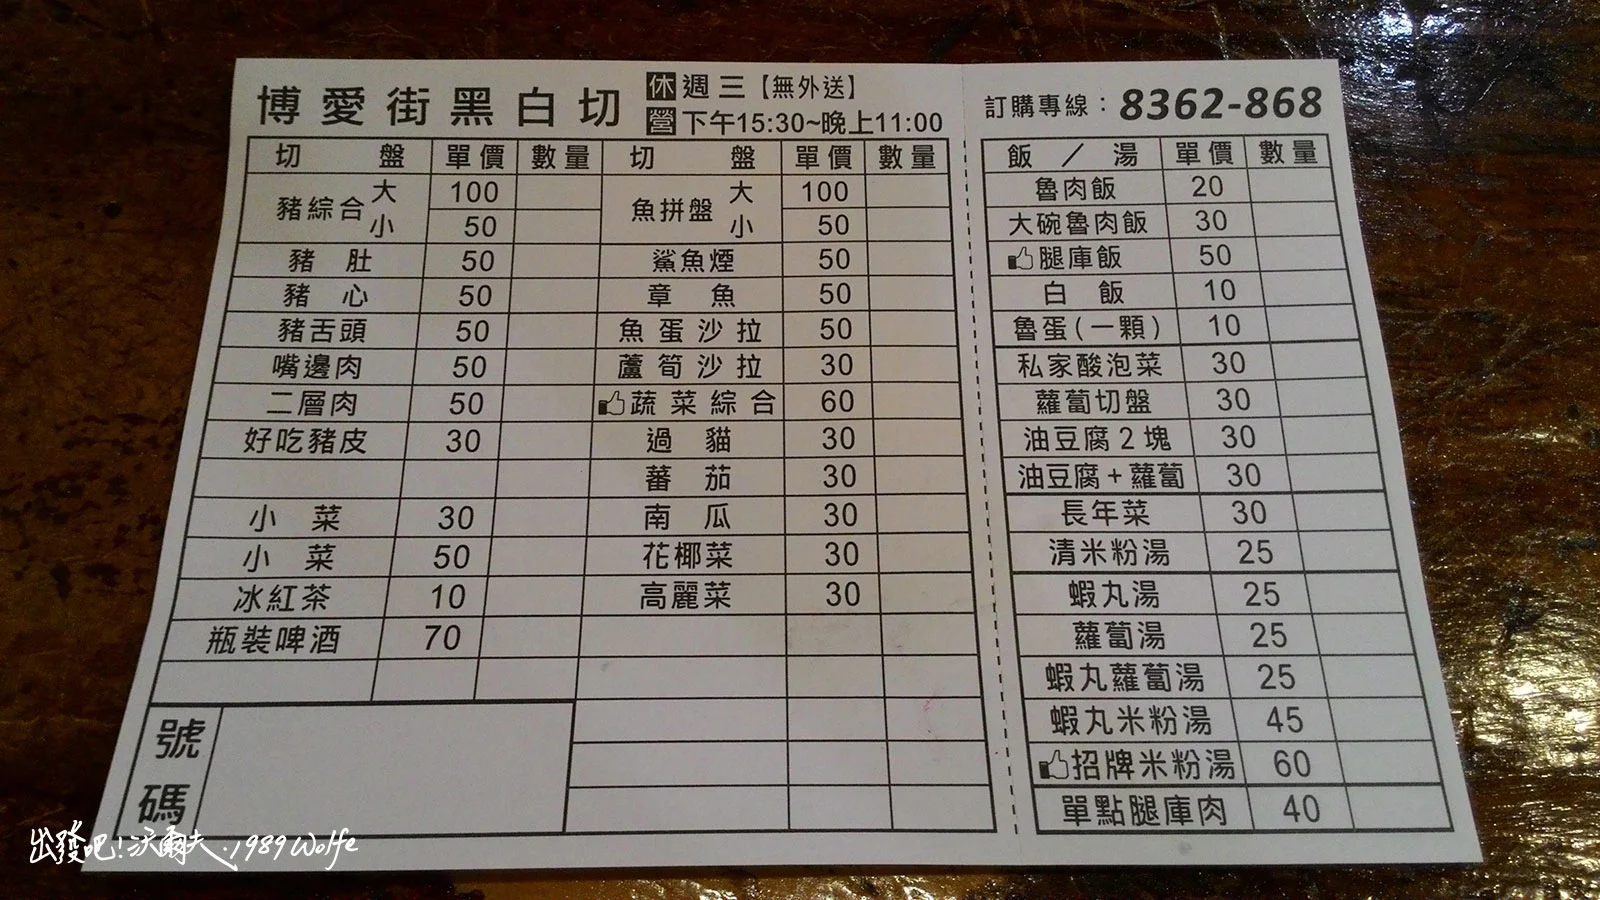 博愛街黑白切
休 週三【無外送】
營 下午15:30~晚上11:00
訂購專線：8362-868
切盤 單價 數量 切盤 單價 數量 飯／湯 單價 數量
豬綜合 大 100 魚拼盤 大 100 魯肉飯 20
小 50 小 50 大碗魯肉飯 30
豬肚 50 鯊魚煙 50 腿庫飯 50
豬心 50 章魚 50 白飯 10
豬舌頭 50 魚蛋沙拉 50 魯蛋(一顆) 10
嘴邊肉 50 蘆筍沙拉 30 私家酸泡菜 30
二層肉 50 蔬菜綜合 60 蘿蔔切盤 30
好吃豬皮 30 過貓 30 油豆腐2塊 30
蕃茄 30 油豆腐+蘿蔔 30
小菜 30 南瓜 30 長年菜 30
小菜 50 花椰菜 30 清米粉湯 25
冰紅茶 10 高麗菜 30 蝦丸湯 25
瓶裝啤酒 70 蘿蔔湯 25
蝦丸蘿蔔湯 25
蝦丸米粉湯 45
招牌米粉湯 60
單點腿庫肉 40
號碼
出發吧!沃爾夫.1989wolfe